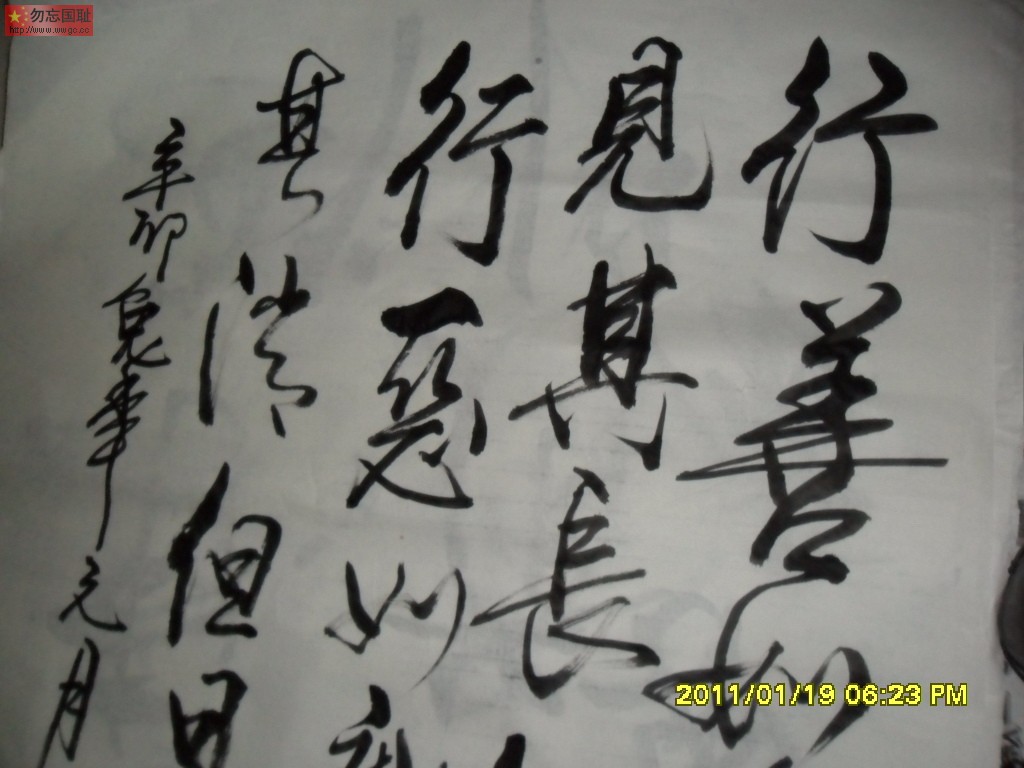 行善如
見其長
行惡如
其消但日
辛卯兔年元月
勿忘国耻
http://www.wwgc.co
2011/01/19 06:23 PM